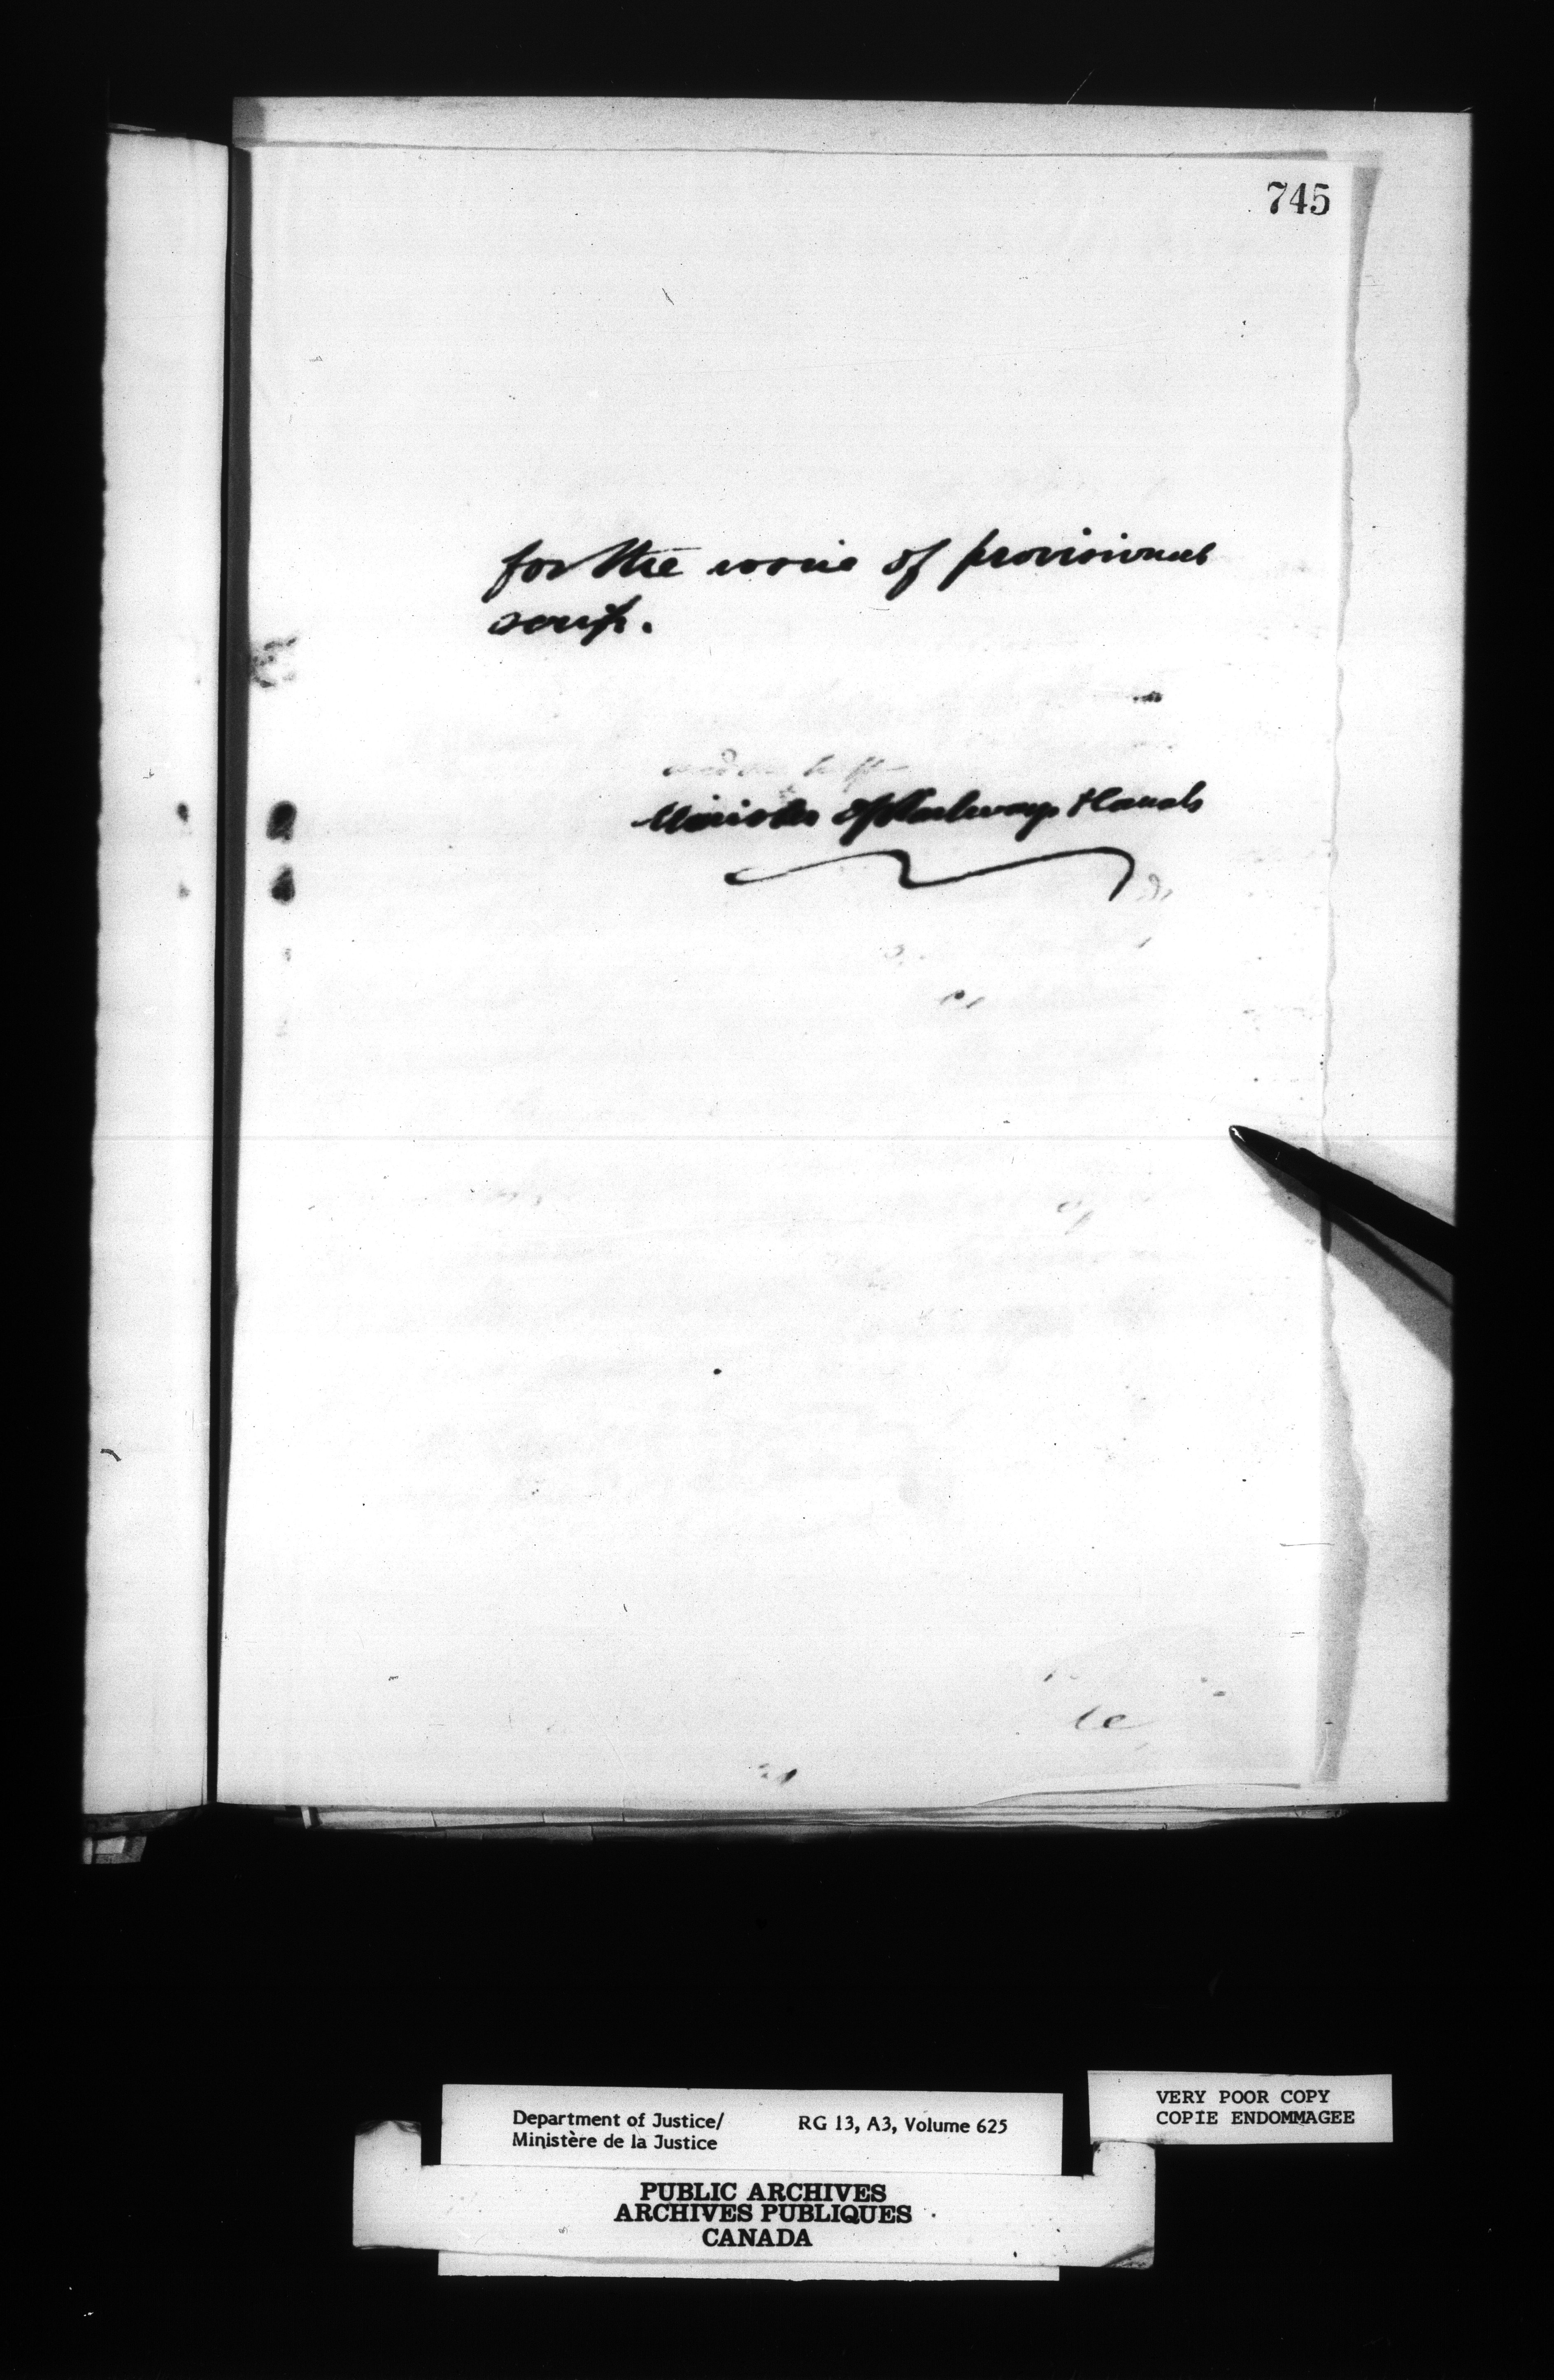 745
for the issue of provisional
scrip.
Minister of Railways & Canals
Department of Justice/
Ministère de la Justice
RG 13, A3, Volume 625
VERY POOR COPY
COPIE ENDOMMAGEE
PUBLIC ARCHIVES
ARCHIVES PUBLIQUES
CANADA